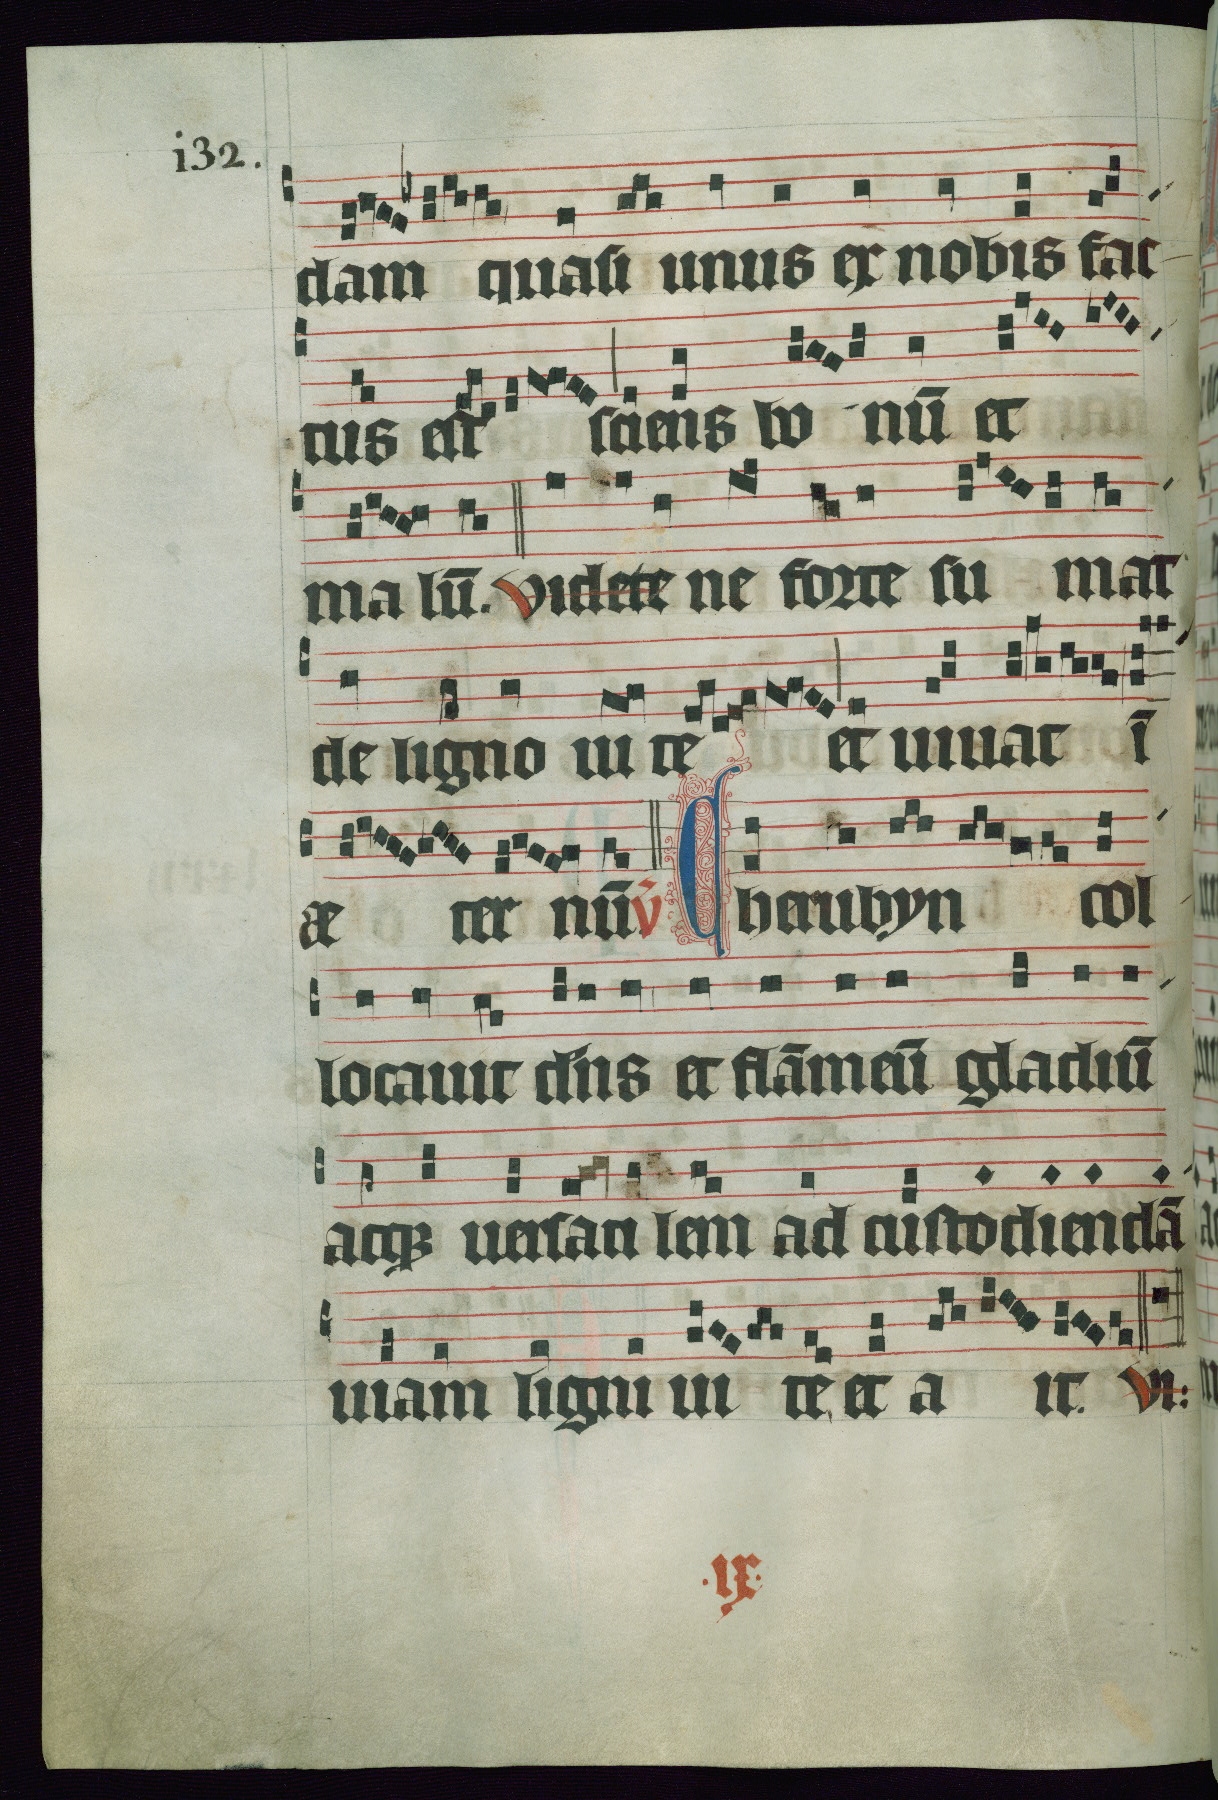 i32.
dam quasi unus ex nobis fac
tus est sciens bo nū et
ma lū. Videte ne forte su mat
de ligno ui te et uiuat ī
æ ter nū v̄ Cherubyn col
locauit dn̄s et flāmeū gladiū
atqꝫ uersati lem ad custodiendā
uiam ligni ui te et a it. Vi:
.ix.